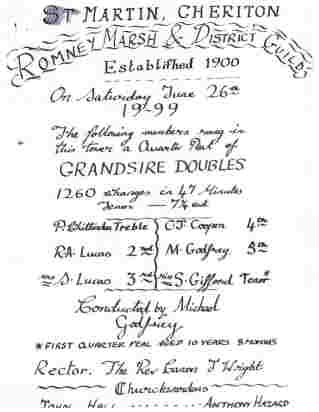 ST MARTIN, CHERITON
ROMNEY MARSH & DISTRICT GUILD
Established 1900
On Saturday June 26th
1999
The following members rang in
this tower a Quarter Peal of
GRANDSIRE DOUBLES
1260 changes in 47 Minutes
Tenor — 7¼ cwt
P. Whittaker Treble C.J. Cooper 4th
R.A. Lucas 2nd M. Godfrey 5th
Mrs S. Lucas 3rd Miss S. Gifford Tenor*
Conducted by Michael
Godfrey
* FIRST QUARTER PEAL AGED 10 YEARS 8 MONTHS
Rector. The Rev Canon J Wright
Churchwardens
JOHN HALL ANTHONY HAZARD